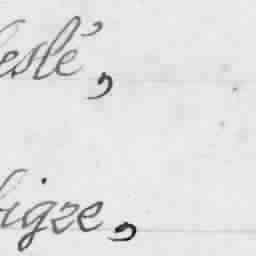 eslé,
igze,